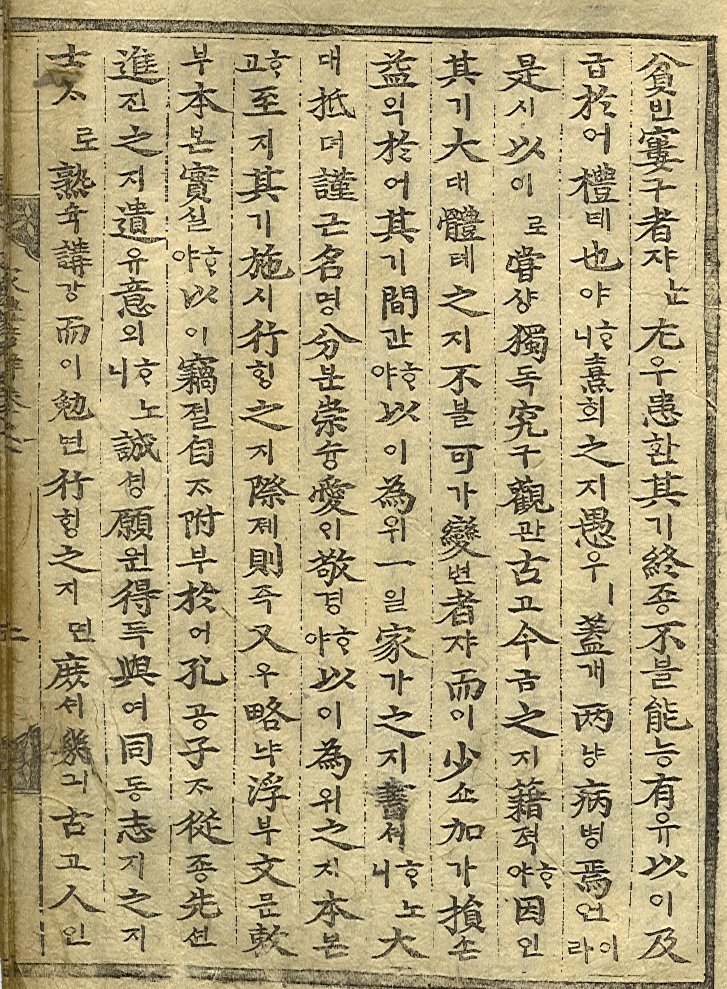 貧빈窶구者쟈ᄂᆞᆫ尤우患환其기終죵不블能능有유以이及
급於어禮례也야ᄒᆞ니熹희之지愚우ㅣ蓋개两냥病병焉언이라
是시以이로嘗샹獨독究구觀관古고今금之지籍젹ᄒᆞ야因인
其기大대體톄之지不블可가變변者쟈而이少쇼加가損손
益익於어其기間간ᄒᆞ야以이為위一일家가之지書셔ᄒᆞ노니大
대抵뎌謹근名명分분崇슝愛ᄋᆡ敬경ᄒᆞ야以이為위之지本본
ᄒᆞ고至지其기施시行ᄒᆡᆼ之지際졔則즉又우略냑浮부文문敦
부本본實실ᄒᆞ야以이竊졀自ᄌᆞ附부於어孔공子ᄌᆞ從죵先션
進진之지遺유意의ᄒᆞ노니誠셩願원得득與여同동志지之지
士ᄉᆞ로熟슉講강而이勉면行ᄒᆡᆼ之지면庶셔幾긔古고人인